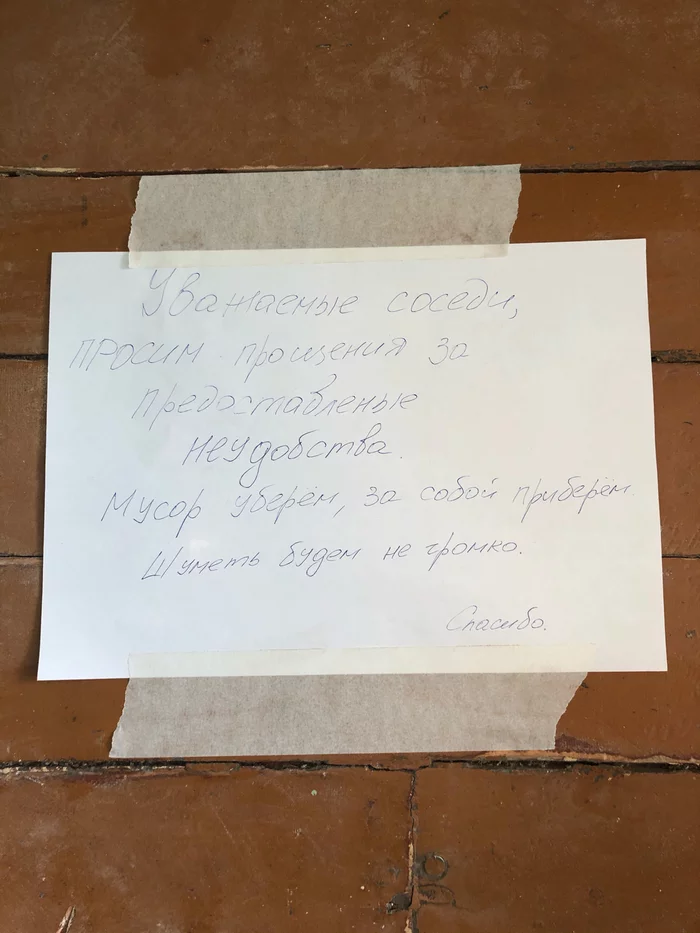 Уважаемые соседи,
просим прощения за
предоставленые
неудобства.
Мусор уберём, за собой приберём.
Шуметь будем не громко.
Спасибо.